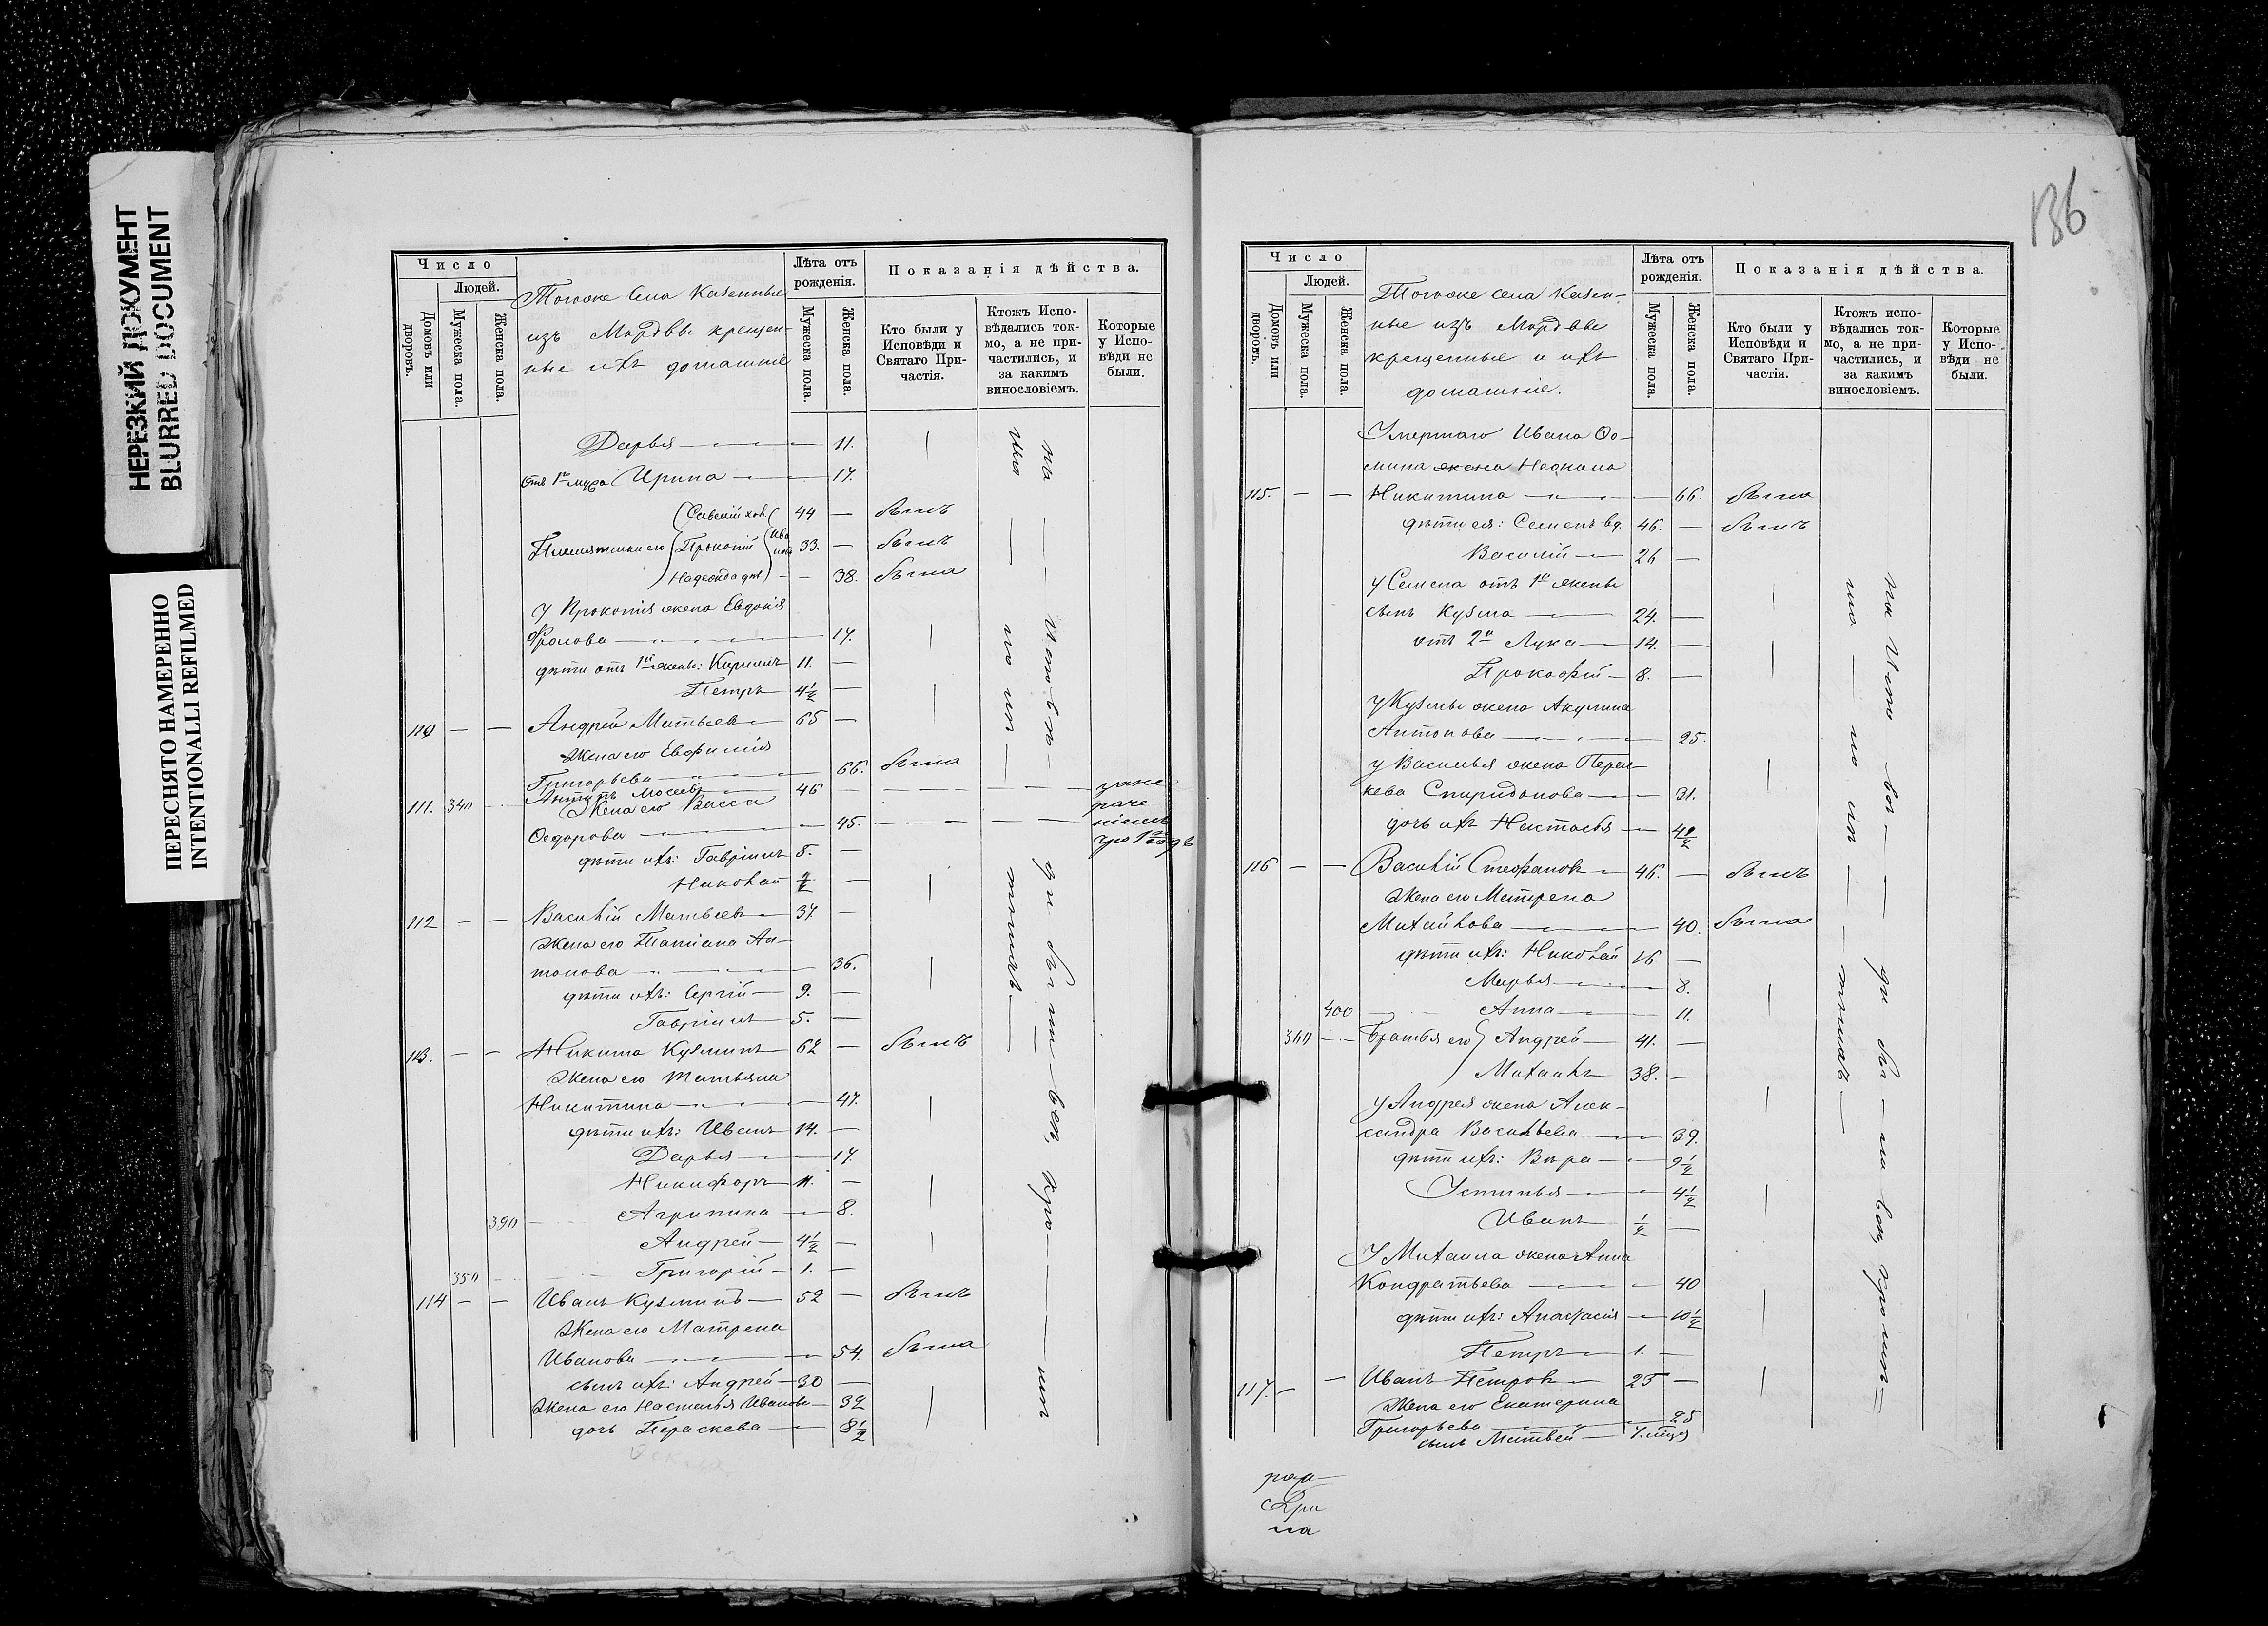 НЕРЕЗКИЙ ДОКУМЕНТ
BLURRED DOCUMENT
ПЕРЕСНЯТО НАМЕРЕННО
INTENTIONALLI REFILMED
Число
Людей.
Домовъ или дворовъ.
Мужеска пола.
Женска пола.
Тогоже Села Казенные
изъ Мордвы крещен-
ные ихъ домашніе
Лѣта отъ рожденія.
Мужеска пола.
Женска пола.
Показанія дѣйства.
Кто были у Исповѣди и Святаго Причастія.
Ктожъ Исповѣдались токмо, а не причастились, и за какимъ винословіемъ.
Которые у Исповѣди не были.
Дарья 11.
Отъ 1го мужа Ирина 17.
Савелій хол. 44 — былъ
Племянники его Прокопій Ивановы 33. — былъ
Надежда — 38. была
У Прокопія жена Евдокія
Фролова 17.
дѣти отъ 1й жены: Кириллъ 11. —
Петръ 4½ —
110 — — Андрей Матвѣевъ 65 —
Жена его Евфимія
Григорьева 66. была
111. 340 Антипъ Моисеевъ 46
Жена его Васса
Ѳедорова 45.
дѣти ихъ: Гавріилъ 8. —
Николай ½ —
112 — — Василій Матвѣевъ 37 —
Жена его Татіана Ан-
тонова 36.
дѣти ихъ: Сергій 9. —
Гавріилъ 5. —
113. — — Никита Кузминъ 62 — былъ
Жена его Татьяна
Никитина 47.
дѣти ихъ: Иванъ 14. —
Дарья 17.
Никифоръ 11. —
390 Агрипина 8.
Андрей 4½ —
350 Григорій 1. —
114 — — Иванъ Кузминъ 52 — былъ
Жена его Матрена
Иванова 54. была
сынъ ихъ: Андрей 30 —
Жена его Настасья Иванова 32
дочь Параскева 8½
136
Число
Людей.
Домовъ или дворовъ.
Мужеска пола.
Женска пола.
Тогоже села Казен-
ные изъ Мордвы
крещенные и ихъ
домашніе.
Лѣта отъ рожденія.
Мужеска пола.
Женска пола.
Показанія дѣйства.
Кто были у Исповѣди и Святаго Причастія.
Ктожъ исповѣдались токмо, а не причастились, и за какимъ винословіемъ.
Которые у Исповѣди не были.
Умершаго Ивана Ѳо-
мина жена
115. — — Никитина 66. была
дѣти ея: Семенъ вд. 46. — былъ
Василій 26 —
У Семена отъ 1й жены
сынъ Кузма 24. —
отъ 2й Лука 14. —
Прокофій 8. —
У Кузмы жена Акулина
Антонова 25.
У Василья жена Парас-
кева Спиридонова 31.
дочь ихъ Настасья 4½
116 — — Василій Стефановъ 46. — былъ
Жена его Матрена
Михайлова 40. была
дѣти ихъ: Николай 16 —
Марья 8.
400 Анна 11.
360 Братья его Андрей 41. —
Михаилъ 38. —
У Андрея жена Алек-
сандра Васильева 39.
дѣти ихъ: Вѣра 9½
Устинья 4½
Иванъ ½ —
У Михаила жена Анна
Кондратьева 40
дѣти ихъ: Анастасія 10½
Петръ 1. —
117. — — Иванъ Петровъ 25 —
Жена его Екатерина
Григорьева 25
сынъ Матвей